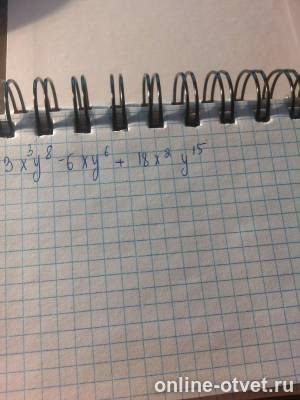 3x³y⁸ - 6xy⁶ + 18x²y¹⁵
online-otvet.ru